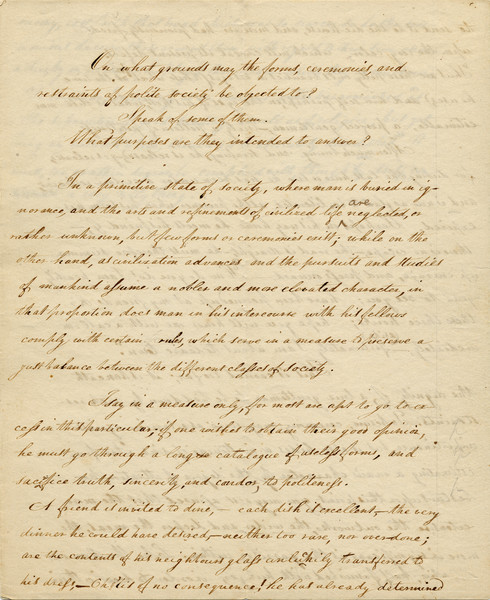 On what grounds may the forms, ceremonies, and
restraints of polite society be objected to?
Speak of some of them.
What purposes are they intended to answer?
In a primitive state of society, where man is buried in ig-
norance, and the arts and refinements of civilized life are neglected, or
rather unknown, but few forms or ceremonies exist; while on the
other hand, as civilisation advances and the pursuits and studies
of mankind assume a nobler and more elevated character, in
that proportion does man in his intercourse with his fellows
comply with certain rules, which serve in a measure to preserve a
just balance between the different classes of society.
I say in a measure only, for most are apt to go to ex
cess in this particular; if one wishes to obtain their good opinion,
he must go through a long catalogue of useless forms, and
sacrifice truth, sincerity and candor, to politeness.
A friend is invited to dine, — each dish is excellent, — the very
dinner he could have desired, — neither too rare, nor over-done;
are the contents of his neighbours glass unluckily transferred to
his dress, — Oh tis of no consequence! he has already determined